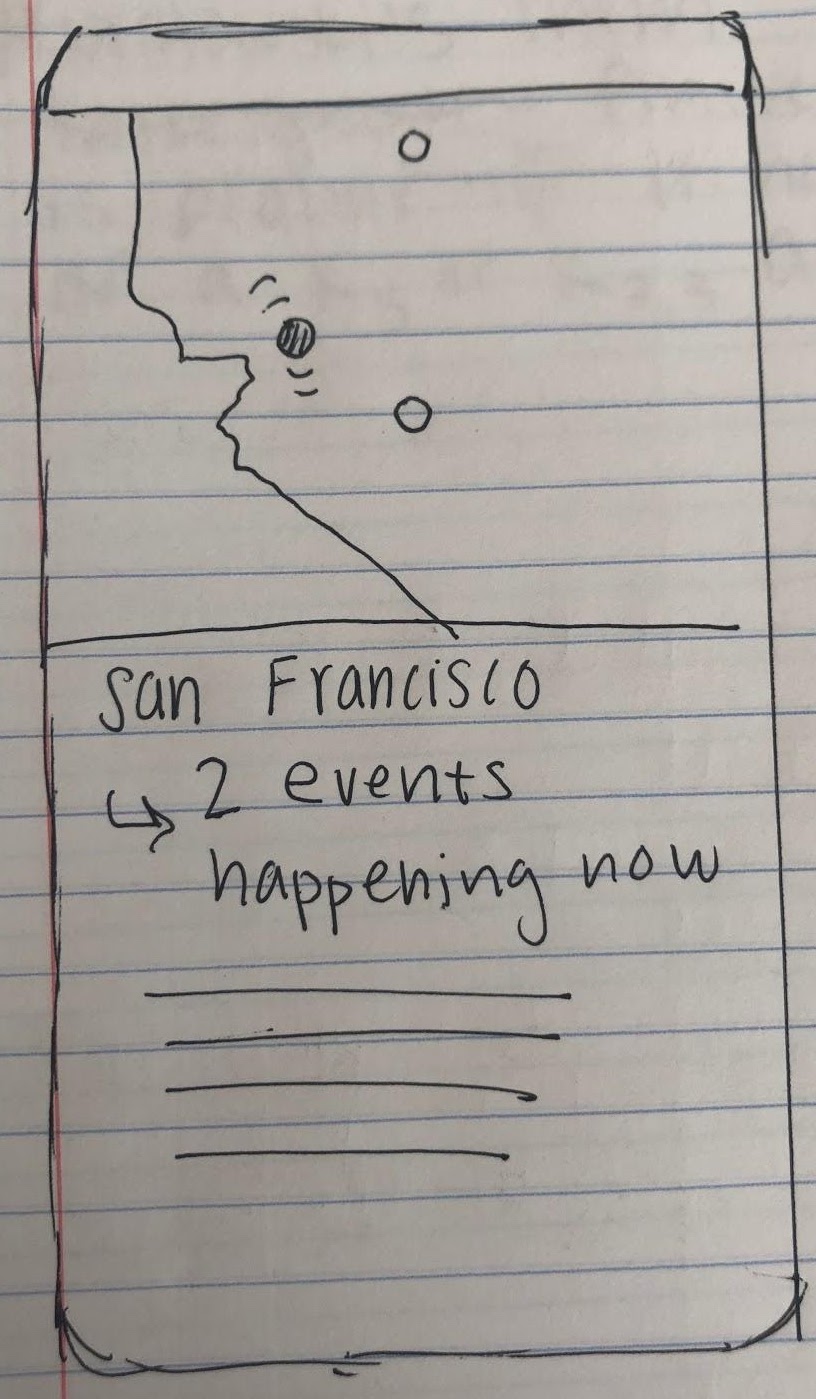 San Francisco
↳ 2 events
happening now